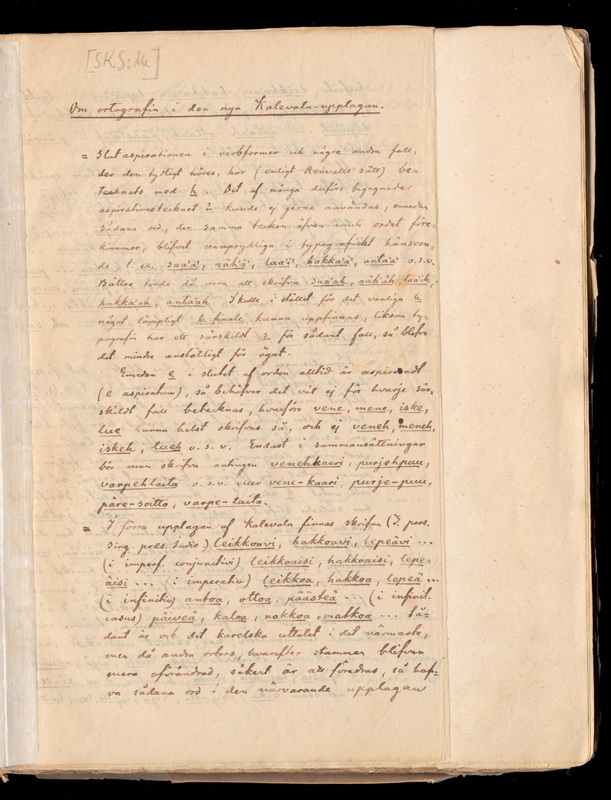 [SKS:lle]
Om ortografin i den nya Kalevala-upplagan.
= Slutaspirationen i verbformer och några andra fall,
der den tydligt höres, har (enligt Renvalls sätt) be
tecknats med h. Det af många derför begagnade
aspirationstecknet ' kunde ej gerna användas, emedan
sådana ord, der samma tecken äfven inuti ordet före-
kommer, blifvit vanprydliga i typografiskt hänseen-
de t. ex. saa'a', näh'ä', laa'i', hakka'a', anta'a' o.s.v.
Bättre torde då vara att skrifva saa'ah, nähäh, taa'ih,
hakka'ah, anta'ah. Skulle i stället för det vanliga h
något lämpligt h finale kunna uppfinnas, liksom ty-
pografin har ett särskildt s för sådant fall, så blefve
det mindre anstötligt för ögat.
Emedan e i slutet af orden alltid är aspireradt
(e aspiratum), så behöfver det väl ej för hvarje sär-
skildt fall betecknas, hvarföre vene, mene, iske,
lue kunna helst skrifvas så, och ej veneh, meneh,
iskeh, lueh o. s. v. Endast i sammansättningar
bör man skrifva antingen venehkaari, purjehpuu,
varpehlaita o. s. v. eller vene-kaari, purje-puu,
päre-soitto, varpe-laita.
= I förra upplagan af Kalevala finnas skrifna (I. pers.
sing. pres. indic.) leikkoavi, hakkoavi, lepeävi ...
(i imperf. conjunctivi) leikkoaisi, hakkoaisi, lepe-
äisi ... (i imperativ) leikkoa, hakkoa, lepeä ...
(i infinitiv) antoa, ottoa, päästeä ... (i infinit.
casus) päiveä, kaloa, nokkoa, matkoa ... Så-
dant är ock det karelska uttalet i det närmaste,
men då andra orters, hvarefter stammen blifver
mera oförändrad, säkert är att föredras, så haf-
va sådana ord i den närvarande upplagan